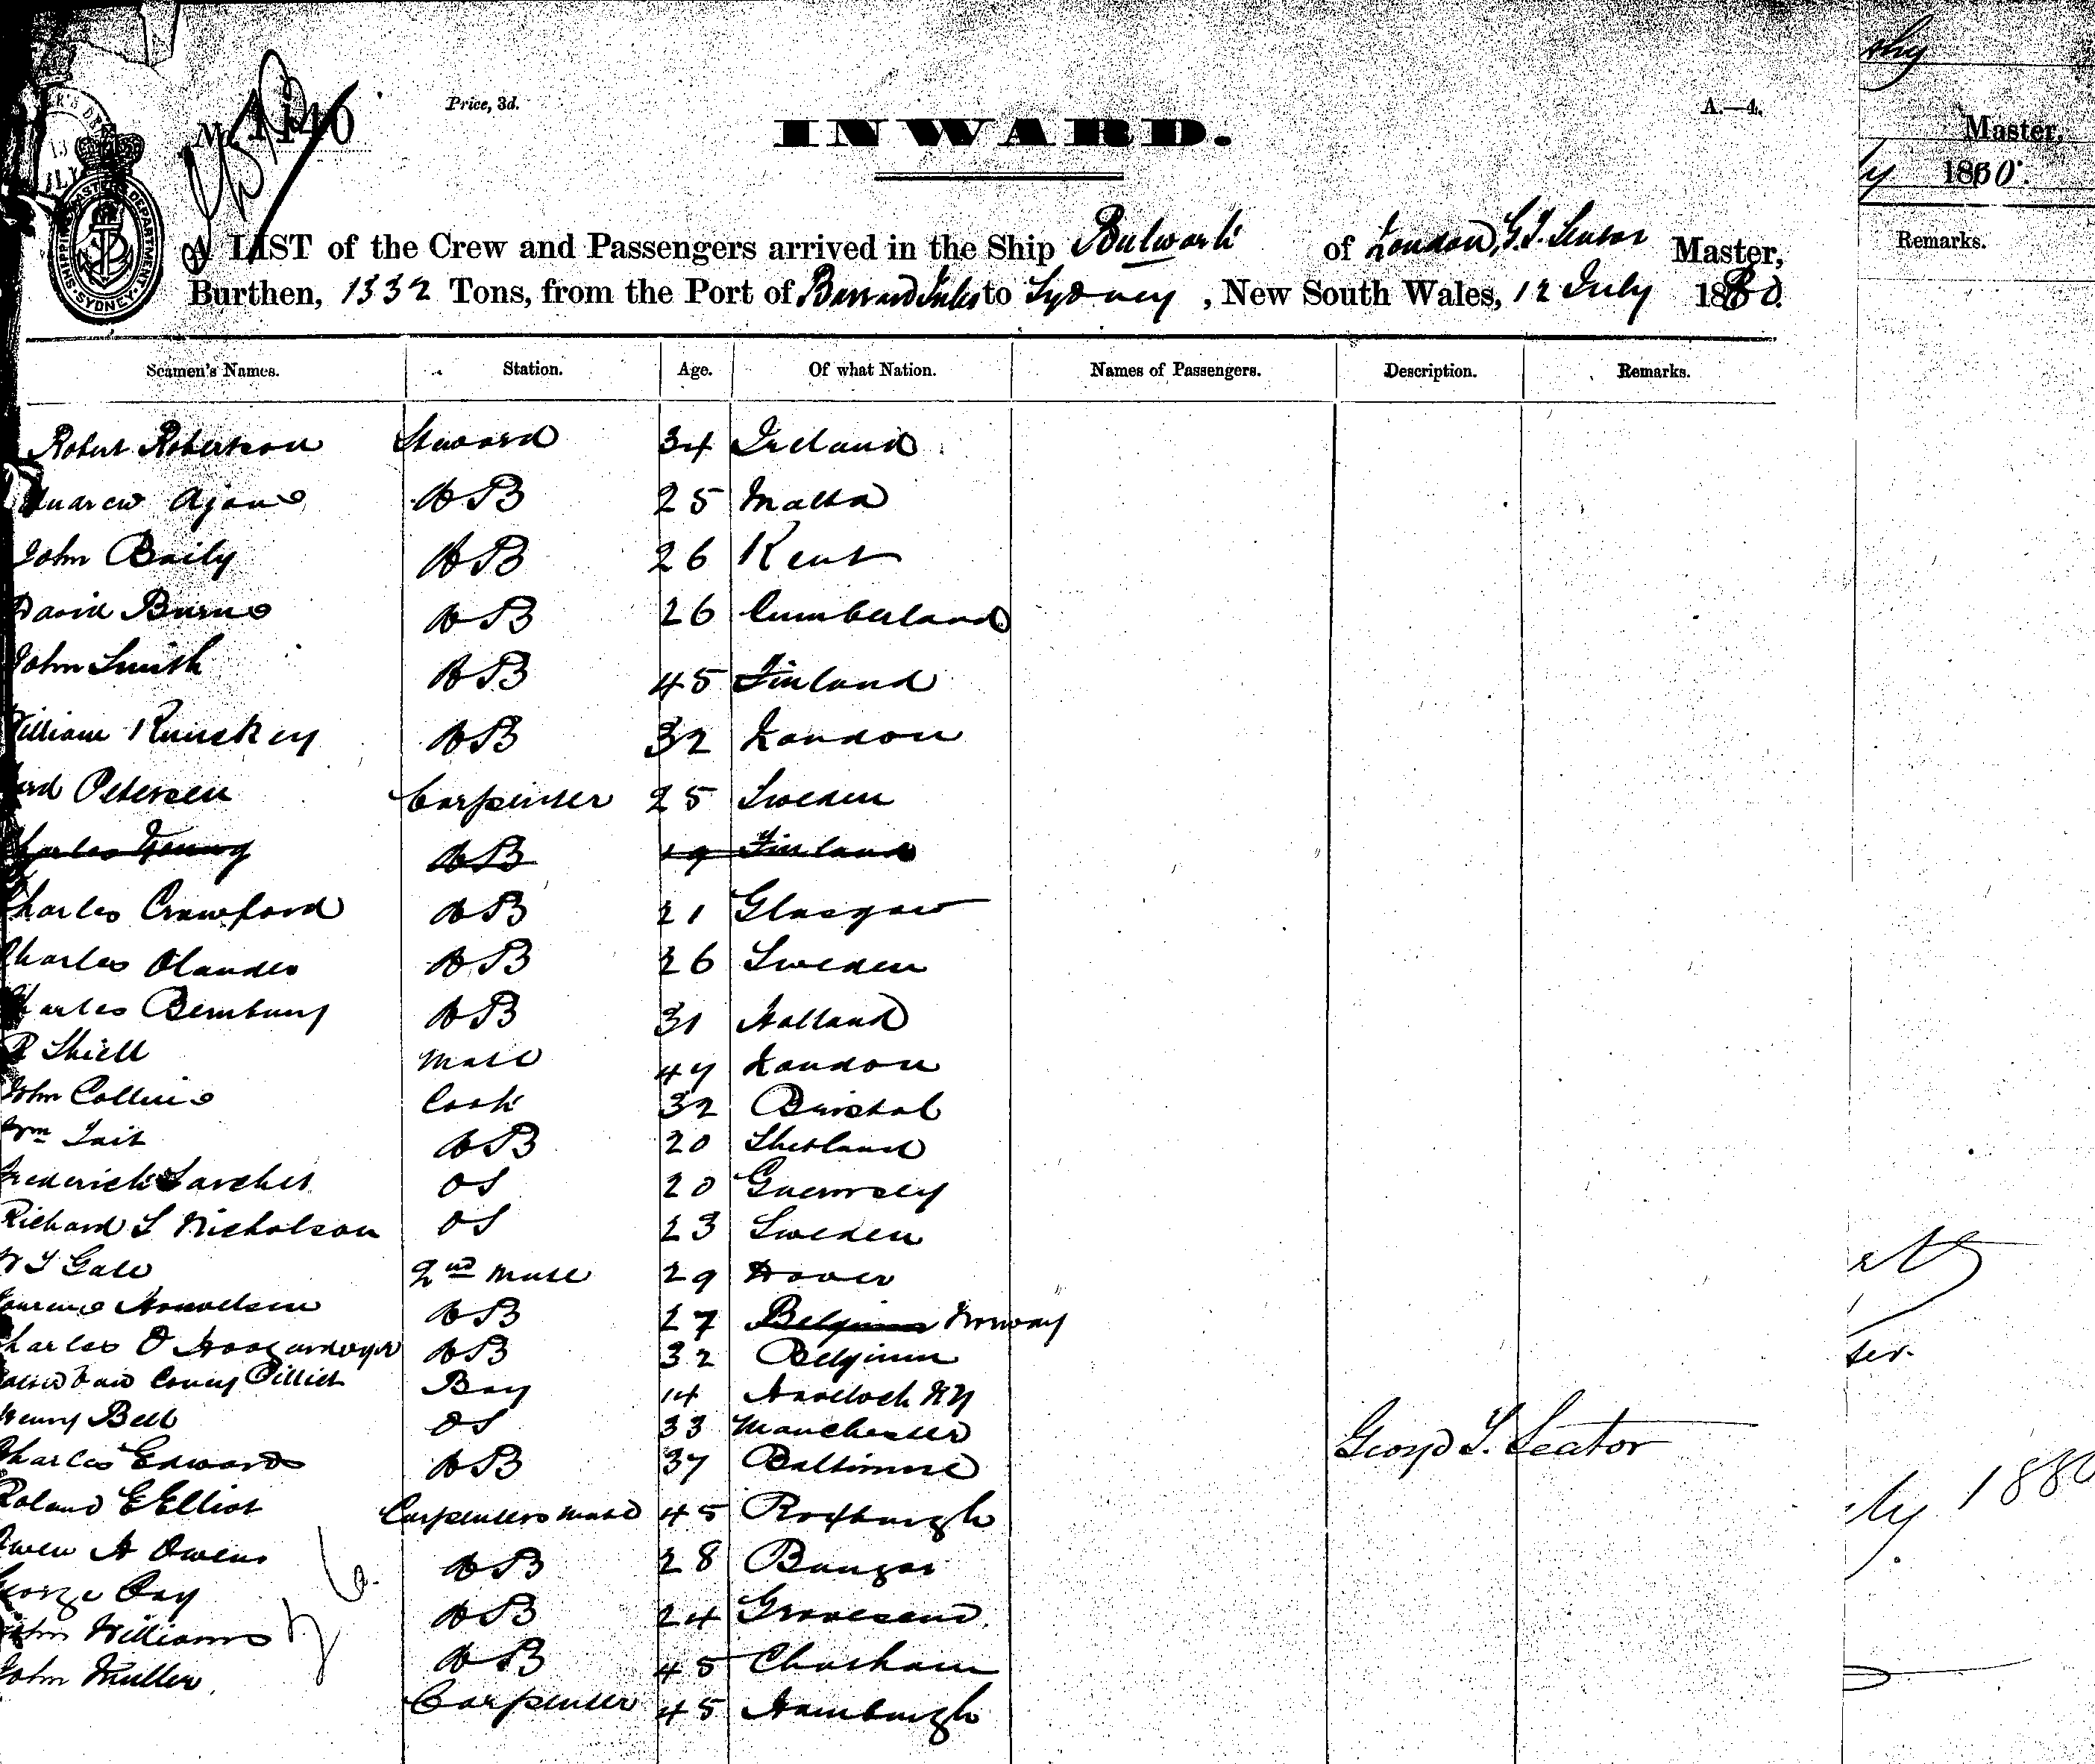 Price, 3d.
A.—4.
No. 1146
INWARD.
A LIST of the Crew and Passengers arrived in the Ship Bulwark of London, G. T. Seator Master,
Burthen, 1332 Tons, from the Port of Burrard Inlet to Sydney, New South Wales, 12 July 1880.
Seamen's Names. Station. Age. Of what Nation. Names of Passengers. Description. Remarks.
Robert Robertson Steward 34 Ireland
Andrew AB 25 Malta
John Baily AB 26 Kent
David Burns AB 26 Cumberland
John Smith AB 45 Finland
William AB 32 London
Petersen Carpenter 25 Sweden
Charles Young AB 19 Finland
Charles Crawford AB 21 Glasgow
Charles Olander AB 26 Sweden
Charles AB 31 Holland
R Shiell Mate 47 London
John Collins Cook 32 Bristol
Wm Tait AB 20 Shetland
Frederick OS 20 Guernsey
Richard L Nicholson OS 23 Sweden
Gale 2nd Mate 29 Dover
AB 27 Belgium Norway
Charles O AB 32 Belgium
Boy 14
Henry Bell OS 33 Manchester
Charles Edwards AB 37 Baltimore
Roland E Elliot Carpenters Mate 45 Roxburgh
Owen A Owens AB 28 Bangor
George Day AB 24 Gravesend
John Williams AB 45 Chatham
John Muller Carpenter 45 Hamburgh
George T. Seator
Master,
1880.
Remarks.
1880
SHIPPING MASTER'S DEPARTMENT SYDNEY